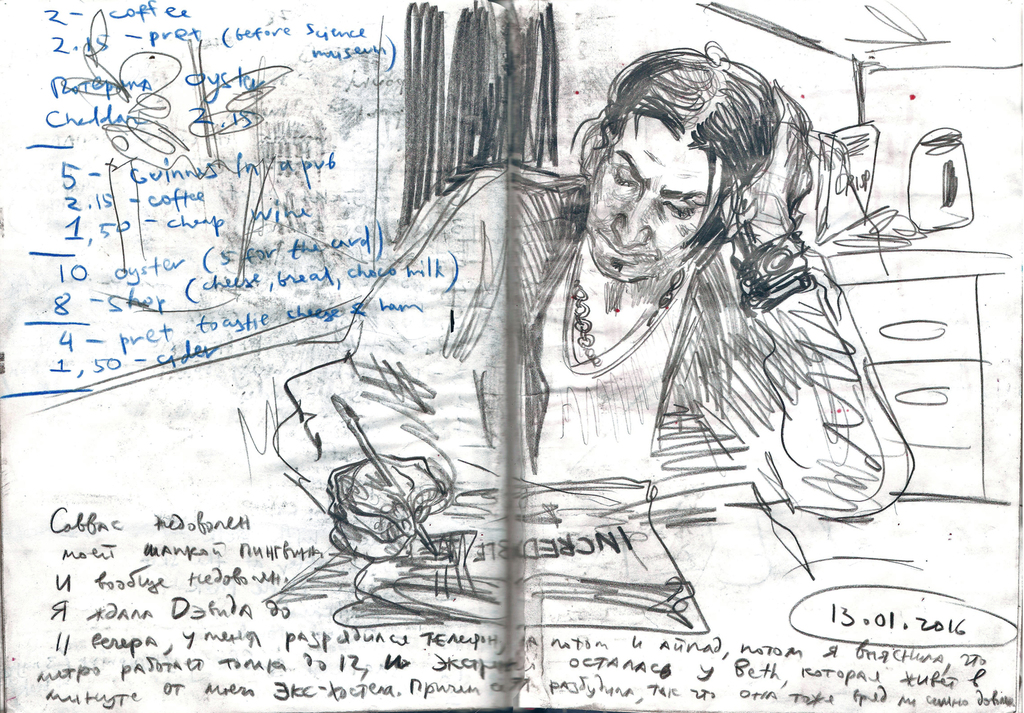 2 - coffee
2.15 - pret (before science
museum)
потеряла oyster
Cheddar 2.15
5 - Guinnes in a pub
2.15 - coffee
1,50 - cheap wine
10 oyster (5 for the card)
8 - shop (cheese, bread, choco milk)
4 - pret toastie cheese & ham
1,50 - cider
CRISP
INCREDIBLE
Саввас недоволен
моей шапкой пингвина
И вообще недоволен.
Я ждала Дэвида до
11 вечера, у меня разрядился телефон, а потом и айпад, потом я выяснила, что
метро работает только до 12, и осталась у Beth, которая живёт в
минуте от моего экс-хостела. Причём разбудила, так что она тоже вряд ли сильно
13.01.2016